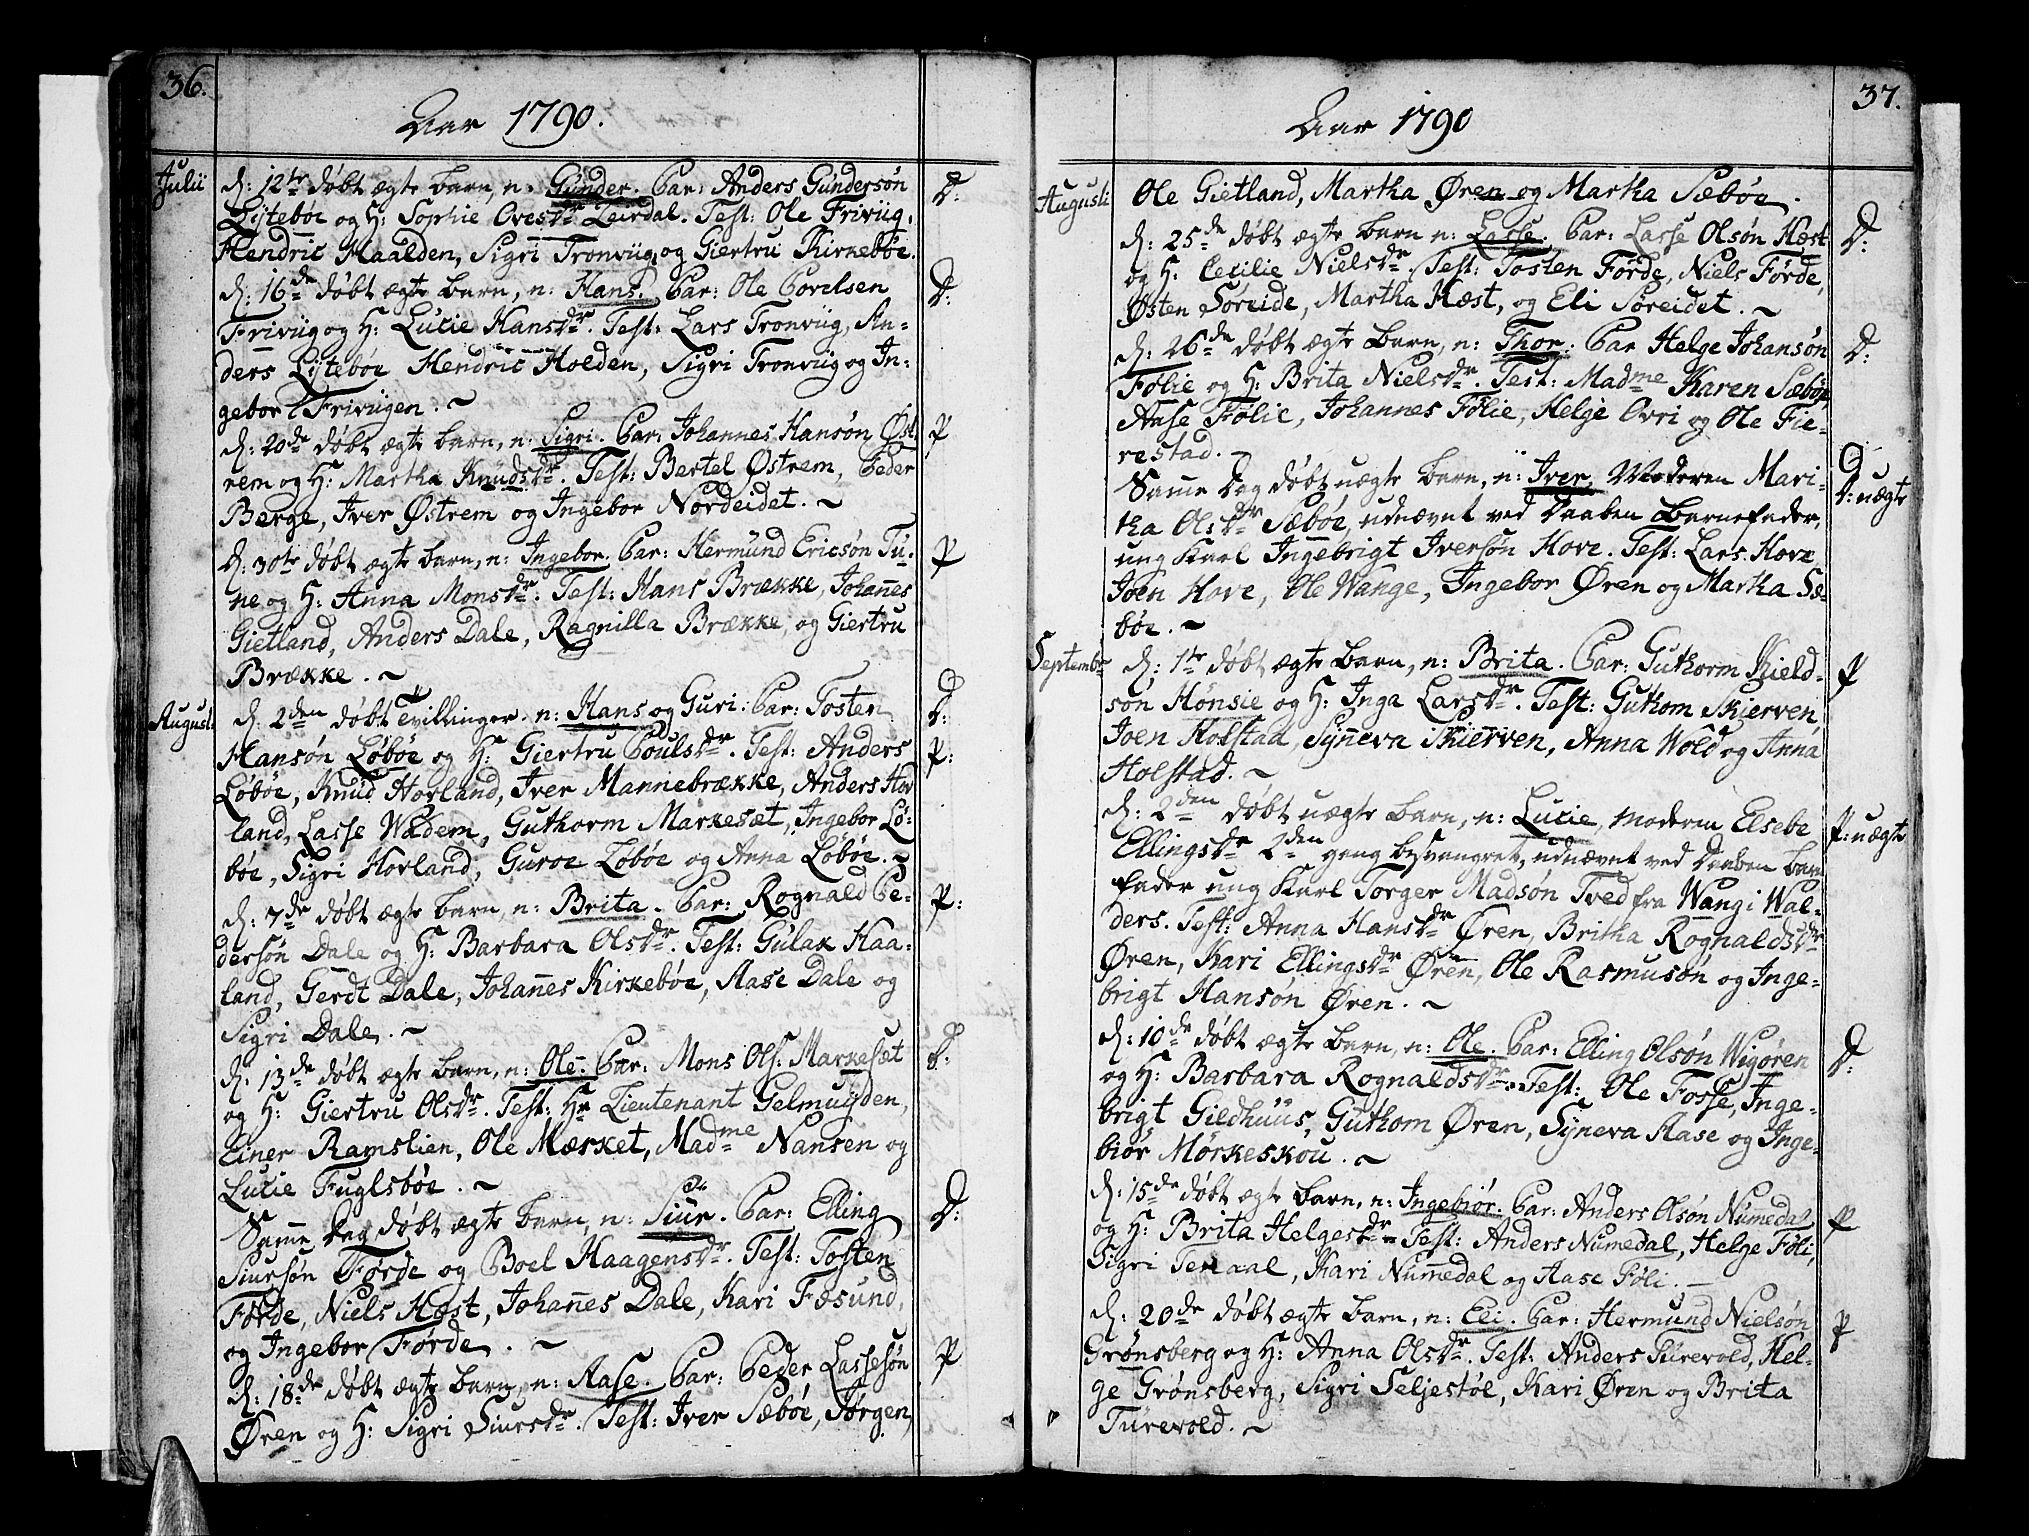 36.
Aar 1790.
Julii
d: 12te døbt ægte Barn, n: Gunder. Par: Anders Gundersøn D:
Lytebøe og H: Sophie Ovesdr Leirdal. Test: Ole Frivüg,
Hendric Haalden, Sigri Tronvüg og Giertru Kirkebøe.
d: 16de døbt ægte Barn, n: Hans. Par: Ole Povelsen D:
Frivüg og H: Lucie Hansdr. Test: Lars Tronvüg, An-
ders Lytebøe Hendric Holden, Sigri Tronvüg og In-
gebor Frivügen. ~
d: 20de døbt ægte Barn, n: Sigri. Par: Johannes Hansøn Øst P
rem og H: Martha Knudsdr. Test: Bertel Østrem, Peder
Berge, Iver Østrem og Ingebor Nordeidet. ~
d: 30te døbt ægte Barn, n: Ingebor. Par: Hermund Ericsøn Tu- P
ne og H: Anna Monsdr. Test: Hans Brække, Johannes
Gietland, Anders Dale, Ragnilla Brække, og Giertru
Brække. ~
August:
d: 2den døbt Tvillinger. n: Hans og Guri: Par: Tosten D:
Hansøn Løbøe og H: Giertru Poulsdr. Test: Anders P:
Løbøe, Knud Hovland, Iver Mannebrække, Anders Hov
land, Lasse Wadem, Guthorm Markesæt, Ingebor Lø-
bøe, Sigri Hovland, Guroe Løbøe og Anna Løbøe. ~
d: 7de døbt ægte Barn, n: Brita. Par: Rognald Pe- P:
dersøn Dale og H: Barbara Olsdr. Test: Gulak Haa-
land, Gerdt Dale, Johannes Kirkebøe, Aase Dale og
Sigri Dale. ~
d: 13de døbt ægte Barn, n: Ole. Par: Mons Ols: Markesæt D:
og H: Giertru Olsdr. Test: Hr Lieutenant Gelmuyden,
Einer Ramslien, Ole Mærket, Madme Nansen og
Lucie Fuglsbøe. ~
Samme Dag døbt ægte Barn, n: Siur. Par: Elling D:
Siursøn Førde og Boel Haagensdr. Test: Tosten
Førde, Niels Hæst, Johannes Dale, Kari Fæsund,
og Ingebor Førde. ~
d: 18de døbt ægte Barn, n: Aase. Par: Peder Lassesøn P
Øren og H: Sigri Siursdr. Test: Iver Sæbøe, Jørgen,
37.
Aar 1790
Augusti
Ole Gietland, Martha Øren og Martha Sæbøe.
d: 25de døbt ægte Barn n: Lasse. Par: Lasse Olsøn Hæst D:
og H: Cecilie Nielsdr. Test: Tosten Førde, Niels Førde,
Østen Søreide, Martha Hæst, og Eli Søreidet. ~
d: 26de døbt ægte Barn, n: Thor. Par Helge Johansøn D:
Følie og H: Brita Nielsdr. Test: Madme Karen Sæbøe,
Aase Følie, Johannes Følie, Helge Ovri og Ole Fie-
restad. ~
Samme Dag døbt uægte Barn, n: Iver, Moderen Mari- D: uægte
tha Ol:dr Sæbøe, udnævnt ved Daaben Barnefader,
ung Karl Ingebrigt Iversøn Hove. Test: Lars Hove
Joen Hove, Ole Wange, Ingebor Øren og Martha Sæ-
bøe. ~
Septembr
d: 1te døbt ægte Barn, n: Brita. Par: Guthorm Kield- P
søn Hønsie og H: Inga Larsdr. Test: Guthom Skierven,
Joen Holstad, Synneva Skierven, Anna Wold og Anna
Holstad. ~
d: 2den døbt uægte Barn, n: Lucie, Moderen Elsebe P: uægte
Ellingsdr 2den gang besvangret, udnævnt ved Daaben Barn
fader ung Karl Torger Madsøn Tved fra Wang i Wal-
ders. Test: Anna Hansdr Øren, Britha Rognaldsdr
Øren, Kari Ellingsdr Øren, Ole Rasmusøn og Inge-
brigt Hansøn Øren. ~
d: 10de døbt ægte Barn, n: Ole. Par: Elling Olsøn Wigøren D:
og H: Barbara Rognaldsdr. Test: Ole Fosse, Inge-
brigt Gildhuus, Guthom Øren, Syneva Aase og Inge-
biør Mørkeskou. ~
d: 15de døbt ægte Barn, n: Ingebiør. Par: Anders Olsøn Nummedal P
og H: Brita Helgesdr. Test: Anders Numedal, Helge Føli,
Sigri Tenaal, Kari Nummedal og Aase Føli. ~
d: 20de døbt ægte Barn, n: Eli. Par: Hermund Nielsøn P
Grønsberg og H: Anna Olsdr. Test: Anders Turevold, Hel-
ge Grønsberg, Sigri Seljestøl, Kari Øren og Brita
Turevold. ~